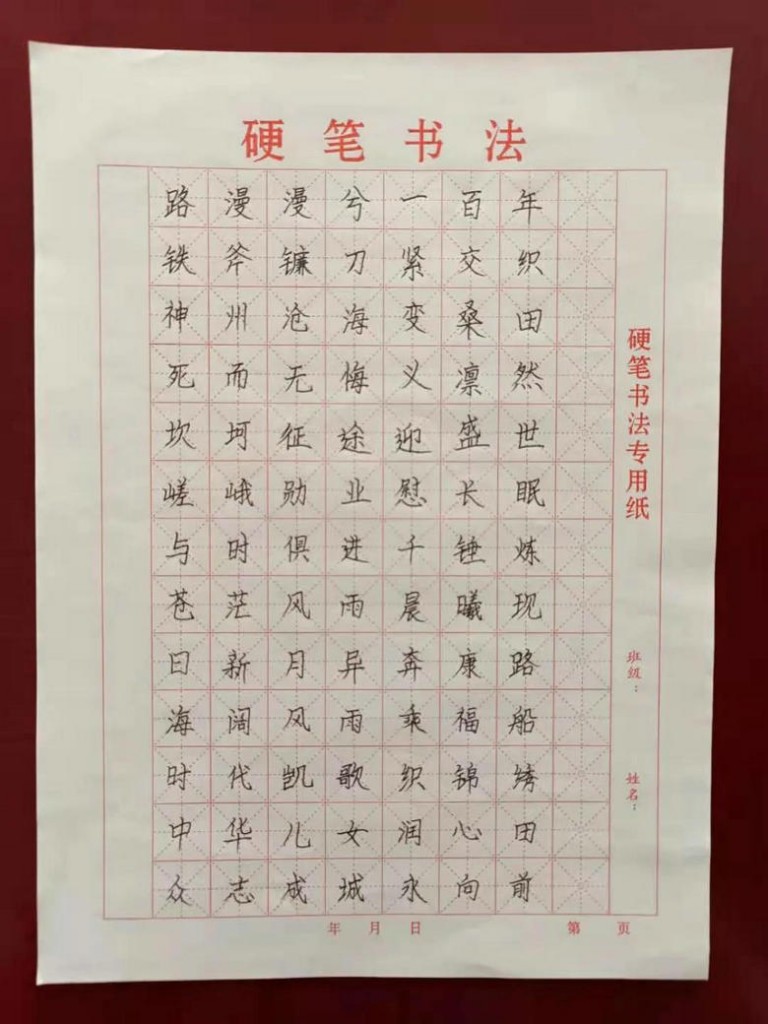 硬笔书法
路漫漫兮一百年
铁斧镰刀紧交织
神州沧海变桑田
死而无悔义凛然
坎坷征途迎盛世
嵯峨勋业慰长眠
与时俱进千锤炼
苍茫风雨晨曦现
日新月异奔康路
海阔风雨乘福船
时代凯歌织锦绣
中华儿女润心田
众志成城永向前
硬笔书法专用纸
班级：
姓名：
年 月 日
第 页